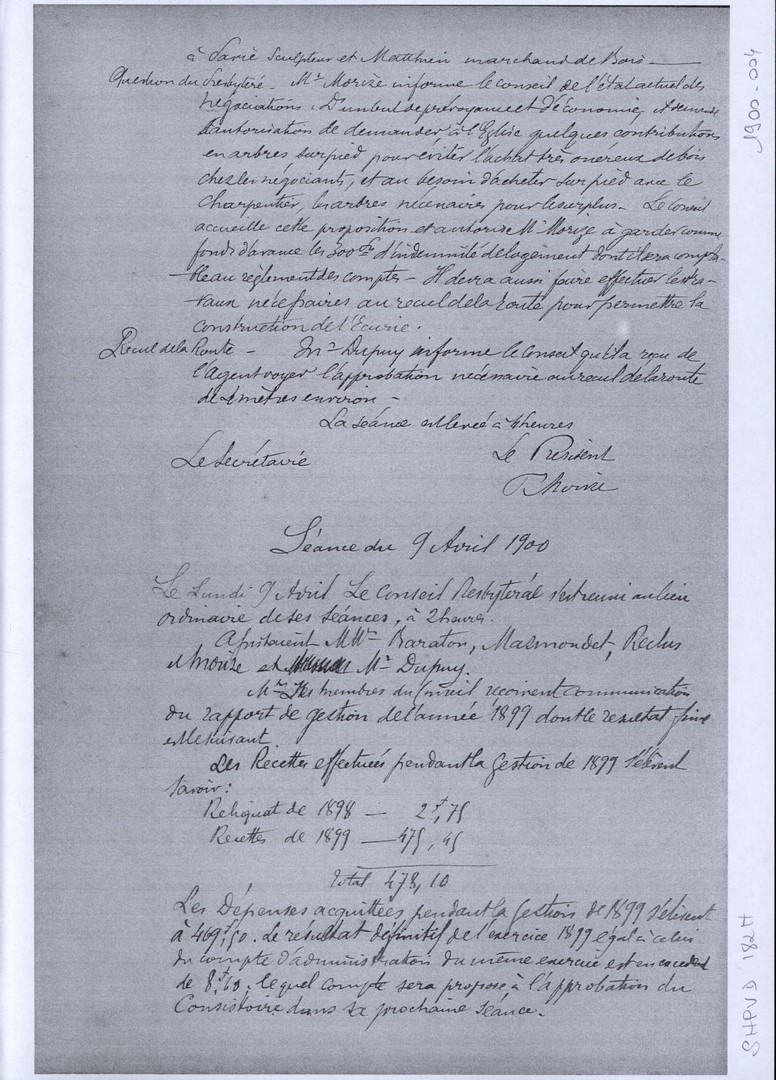 à Varié Sculpteur et Matthieu marchand de Bois -
Question du Presbytère. - Mr Morize informe le conseil de l'état actuel des
négociations. D'un but de prévoyance et d'économie, il demande
l'autorisation de demander à l'Eglise quelques contributions
en arbres sur pied pour éviter l'achat très onéreux de bois
chez les négociants, et au besoin d'acheter sur pied avec le
Charpentier, les arbres nécessaires pour le surplus - Le Conseil
accueille cette proposition et autorise Mr Morize à garder comme
fonds d'avance les 300 d'indemnité de logement dont il sera compta-
-ble au règlement des comptes - Il devra aussi faire effectuer les tra-
-vaux nécessaires au recul de la route pour permettre la
construction de l'Ecurie.
Recul de la Route - Mr Dupuy informe le Conseil qu'il a reçu de
l'Agent voyer l'approbation nécessaire au recul de la route
de mètres environ -
La séance est levée à heures
Le Secrétaire Le Président
Morize
Séance du 9 Avril 1900
Le Lundi 9 Avril Le Conseil Presbytéral s'est réuni au lieu
ordinaire de ses séances, à 2 heures.
Assistaient MMrs Baraton, Masmondet, Reclus
Morize et Mr Dupuy.
Mrs les membres du Conseil reçoivent communication
du rapport de gestion de l'année 1899 dont le resultat
est le suivant
Les Recettes effectuées pendant la Gestion de 1899 s'élèvent
savoir:
Reliquat de 1898 - 2f,75
Recettes de 1899 - 475,45
Total 478,10
Les Dépenses acquittées pendant la Gestion de 1899 s'élèvent
à 469f,50. Le résultat définitif de l'exercice 1899 égal à celui
du compte d'administration du même exercice est en excédent
de 8f,60, lequel compte sera proposé à l'approbation du
Consistoire dans sa prochaine séance.
1900-004
SHPVD 182H